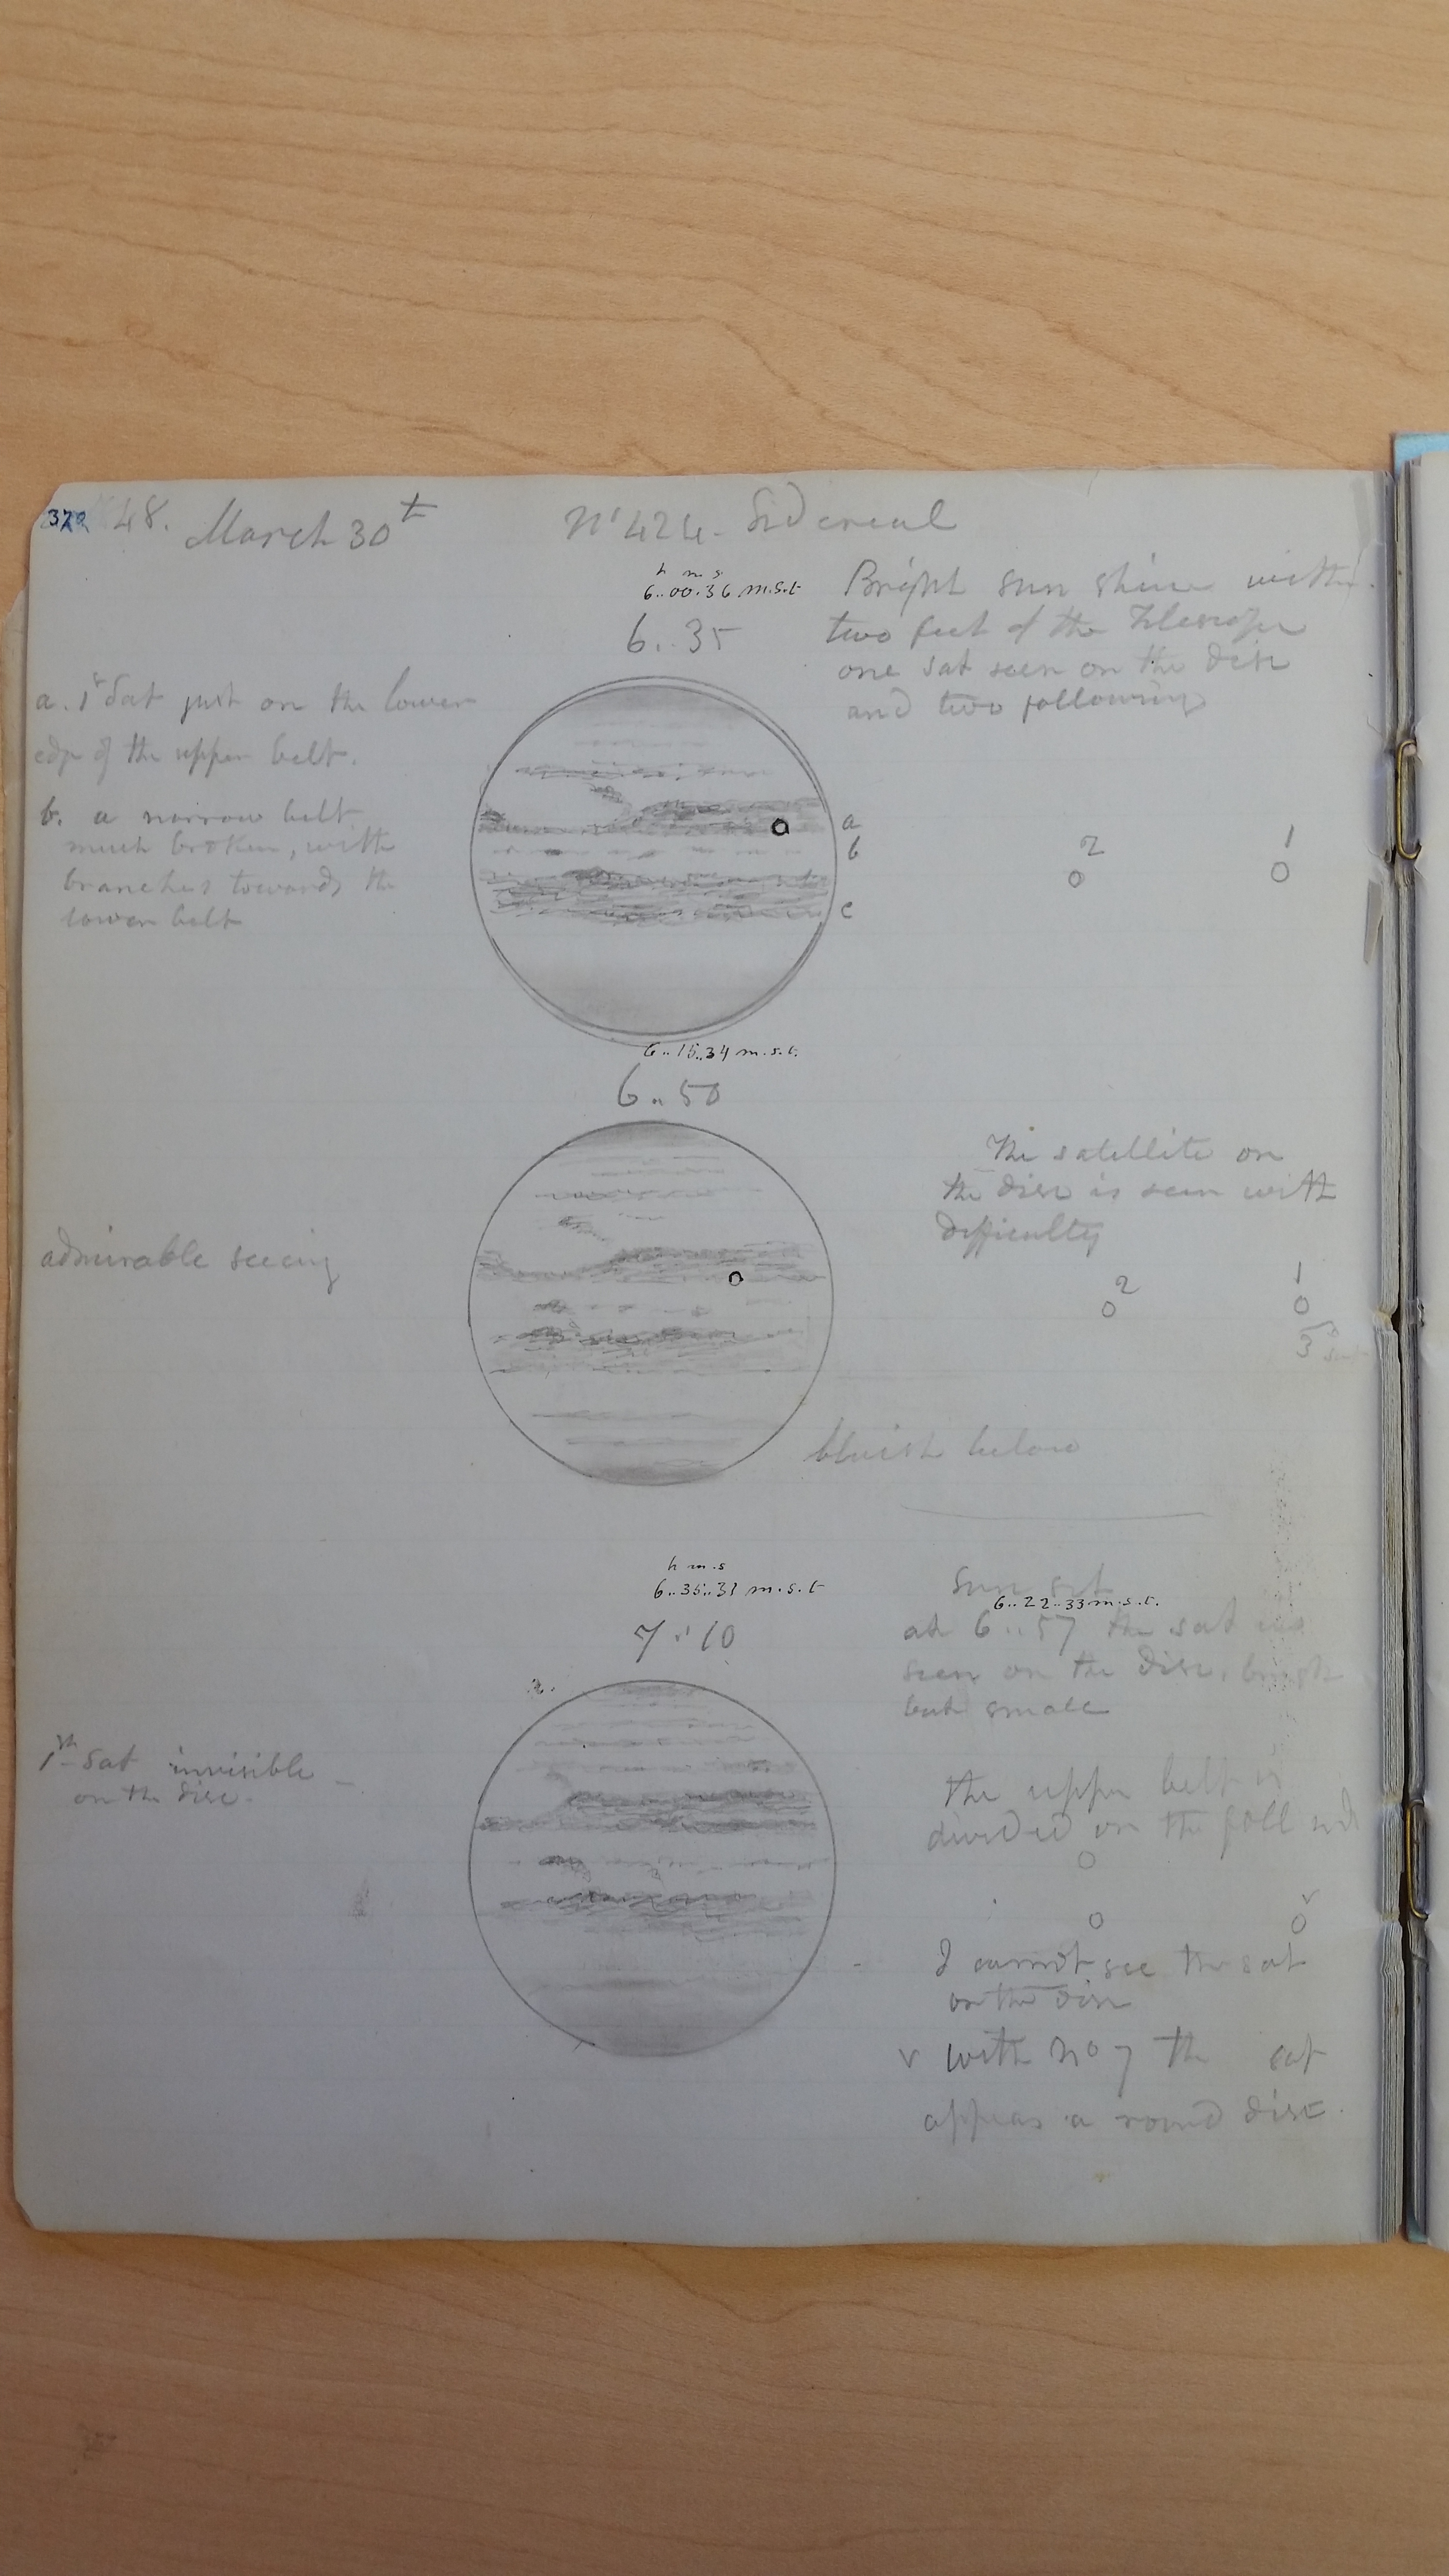 48. March 30t No 424. Sidereal
h m s
6..00.36 m.s.t
6..35
Bright sun shine within
two feet of the Telescope
one sat seen on the disc
and two following
a. 1st Sat just on the lower
edge of the upper belt.
b. a narrow belt
much broken, with
branches towards the
lower belt
a
b
c
2
1
6..15..34 m.s.t.
6..50
The satellite on
the disc is seen with
difficulty
admirable seeing
2
1
3
bluish below
h m.s
6..35..31 m.s.t
7..10
sun set
6..22..33 m.s.t.
at 6..57 the sat was
seen on the disc,
but small
1st sat invisible
on the disc.
the upper belt is
divided on the foll side
v
I cannot see the sat
on the disc
v with no 7 the sat
appears a round disc.